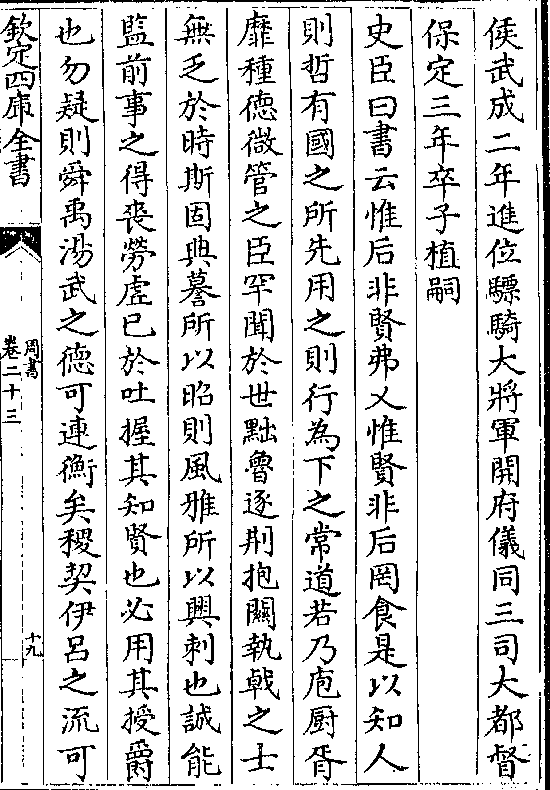 侯武成二年進位驃騎大將軍開府儀同三司大都督
保定三年卒子植嗣
史臣曰書云惟后非賢弗乂惟賢非后罔食是以知人
則哲有國之所先用之則行為下之常道若乃庖厨胥
靡種德微管之臣罕聞於世黜魯逐荆抱關執戟之士
無乏於時斯固典謩所以昭則風雅所以興刺也誠能
監前事之得丧勞虚已於吐握其知賢也必用其授爵
也勿疑則舜禹湯武之德可連衡矣稷契伊呂之流可
欽定四庫全書
周書
卷二十三
十九